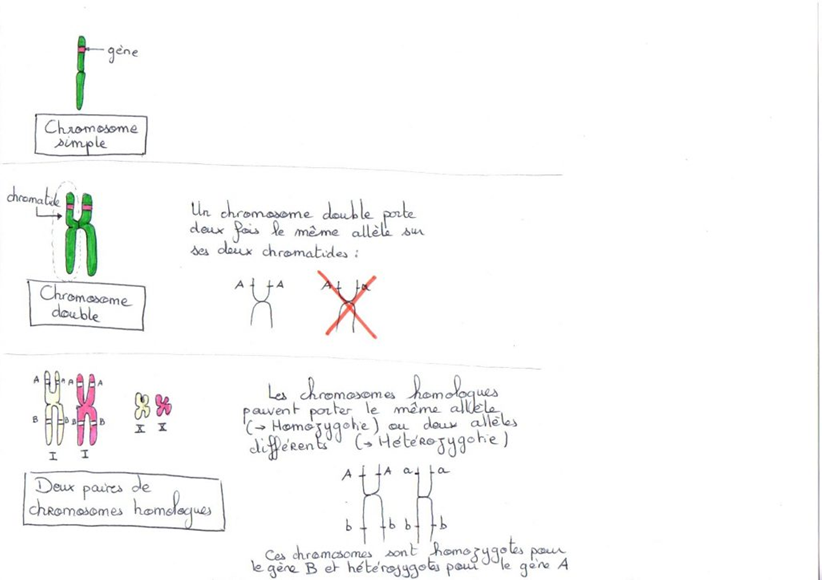 gène
Chromosome
simple
chromatide
Un chromosome double porte
deux fois le même allèle sur
ses deux chromatides :
A A
A a
Chromosome
double
A A A A
B B B B
I I
X X
Les chromosomes homologues
peuvent porter le même allèle
(→ Homozygotie) ou deux allèles
différents (→ Hétérozygotie)
Deux paires de
chromosomes homologues
A A a a
b b b b
Ces chromosomes sont homozygotes pour
le gène B et hétérozygotes pour le gène A